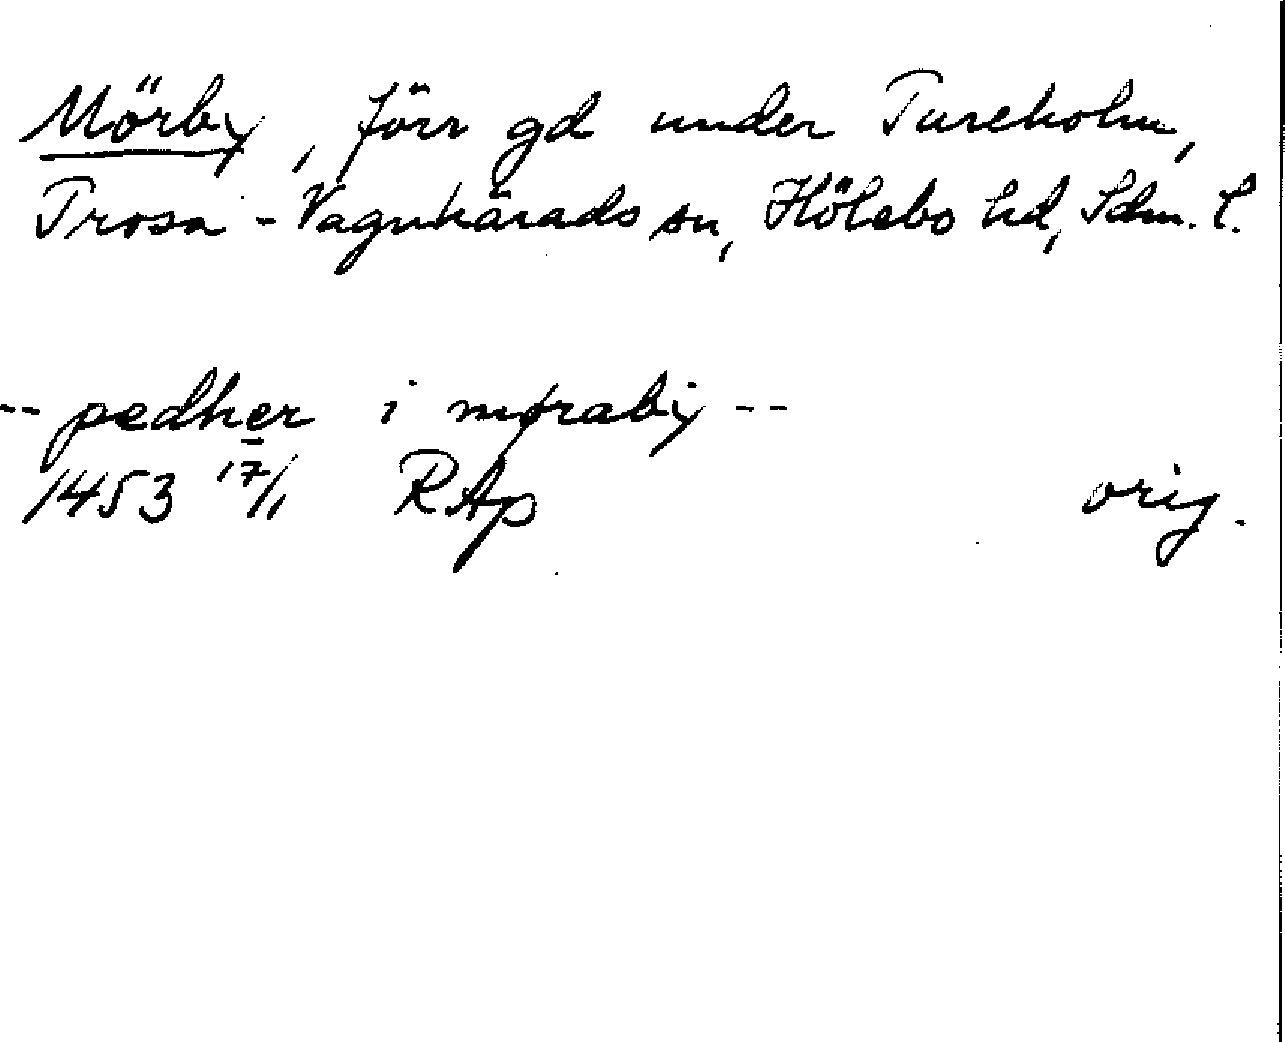 Mörby, förr gd under Tureholm,
Trosa-Vagnhärads sn, Hölebo hd, Sdm. l.
-- pedher i mørabÿ --
1453 17/1 RAp orig.